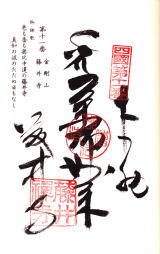 奉納
四國第十一番
薬師如来
藤井寺
第十一番 金剛山
藤井寺
御詠歌
色も香も無比中道の藤井寺
真如の波のたたぬ日もなし